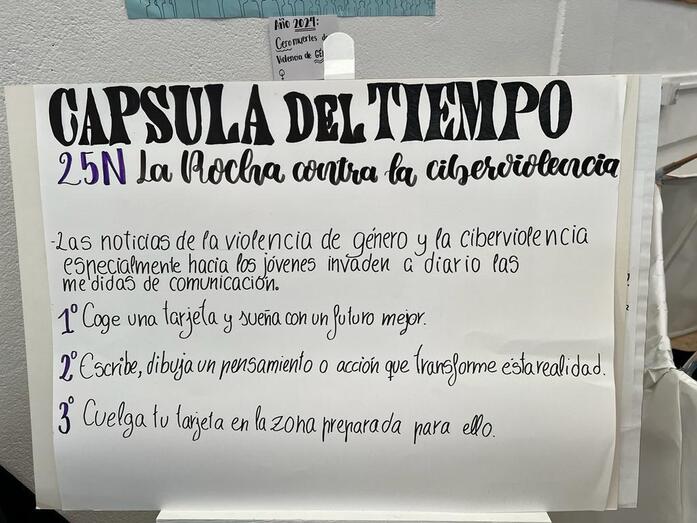 Año 2024:
Cero muertes de
Violencia de GÉ
CAPSULA DEL TIEMPO
25N La Rocha contra la ciberviolencia
-Las noticias de la violencia de género y la ciberviolencia
especialmente hacia los jóvenes invaden a diario las
medidas de comunicación.
1º Coge una tarjeta y sueña con un futuro mejor.
2º Escribe, dibuja un pensamiento o acción que transforme esta realidad.
3º Cuelga tu tarjeta en la zona preparada para ello.